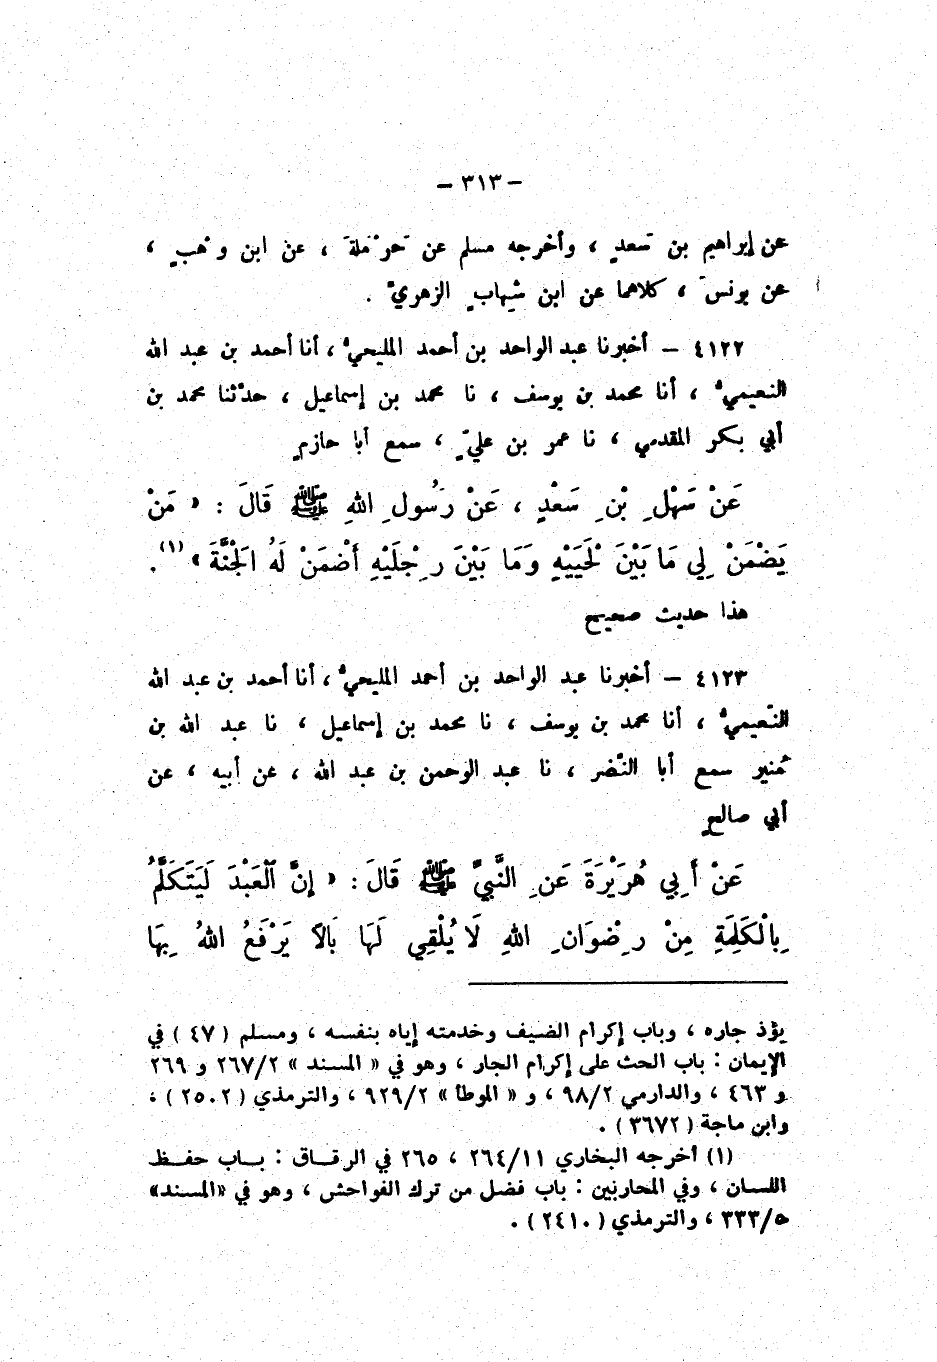 – ٣١٣ –
عن إبراهيم بن سَعدٍ ، وأخرجه مسلم عن حَرْمَلةَ ، عن ابن وَهبٍ ،
عن يونسَ ، كلاهما عن ابن شِهابٍ الزهريِّ .
٤١٢٢ – أخبرنا عبد الواحد بن أحمد المليحيُّ ، أنا أحمد بن عبد الله
النعيميُّ ، أنا محمد بن يوسف ، نا محمد بن إسماعيل ، حدّثنا محمد بن
أبي بكر المقدمي ، نا عمر بن عليٍّ ، سمع أبا حازمٍ
عَنْ سَهْلِ بْنِ سَعْدٍ ، عَنْ رَسُولِ اللهِ ﷺ قَالَ : « مَنْ
يَضْمَنْ لِي مَا بَيْنَ لَحْيَيْهِ وَمَا بَيْنَ رِجْلَيْهِ أَضْمَنْ لَهُ الْجَنَّةَ » (١) .
هذا حديث صحيح
٤١٢٣ – أخبرنا عبد الواحد بن أحمد المليحيُّ ، أنا أحمد بن عبد الله
النّعيميُّ ، أنا محمد بن يوسف ، نا محمد بن إسماعيل ، نا عبد الله بن
مُنير سمع أبا النَّضر ، نا عبد الرحمن بن عبد الله ، عن أبيه ، عن
أبي صالحٍ
عَنْ أَبِي هُرَيْرَةَ عَنِ النَّبِيِّ ﷺ قَالَ : « إِنَّ الْعَبْدَ لَيَتَكَلَّمُ
بِالْكَلِمَةِ مِنْ رِضْوَانِ اللهِ لَا يُلْقِي لَهَا بَالاً يَرْفَعُ اللهُ بِهَا
يؤذ جاره ، وباب إكرام الضيف وخدمته إياه بنفسه ، ومسلم ( ٤٧ ) في
الإيمان : باب الحث على إكرام الجار ، وهو في « المسند » ٢٦٧/٢ و ٢٦٩
و ٤٦٣ ، والدارمي ٩٨/٢ ، و « الموطأ » ٩٢٩/٢ ، والترمذي ( ٢٥٠٢ ) ،
وابن ماجة ( ٣٦٧٢ ) .
(١) أخرجه البخاري ٢٦٤/١١ ، ٢٦٥ في الرقاق : باب حفظ
اللسان ، وفي المحاربين : باب فضل من ترك الفواحش ، وهو في «المسند»
٣٣٣/٥ ، والترمذي ( ٢٤١٠ ) .